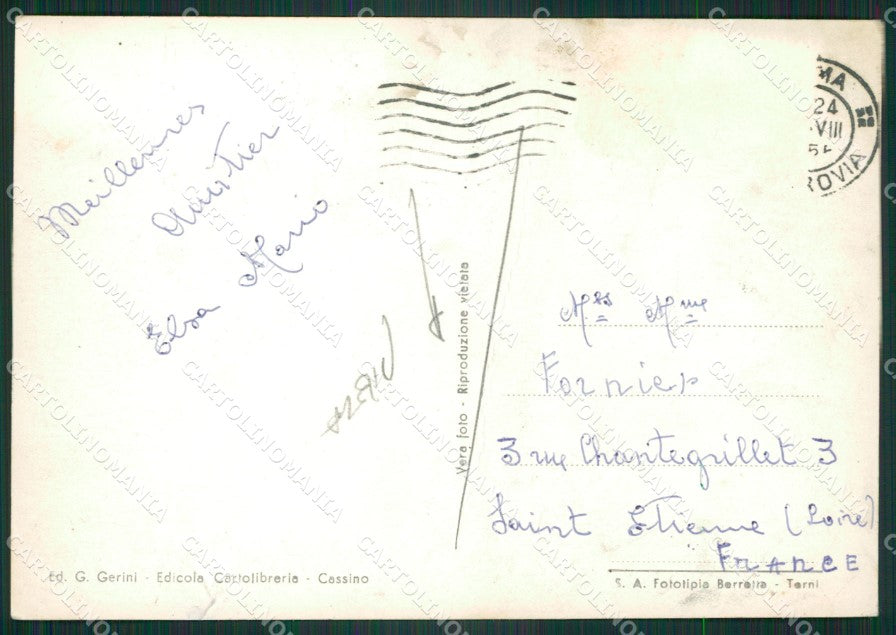 Meilleures
Amitier
Elsa Mario
Vera foto - Riproduzione vietata
Ed. G. Gerini - Edicola Cartolibreria - Cassino
MA
24
VIII
ROVIA
Mrs Mme
Fornier
3 rue Chantegrillet 3
Saint Etienne (Loire)
FRANCE
S. A. Fototipia Berretta - Terni
CARTOLINOMANIA